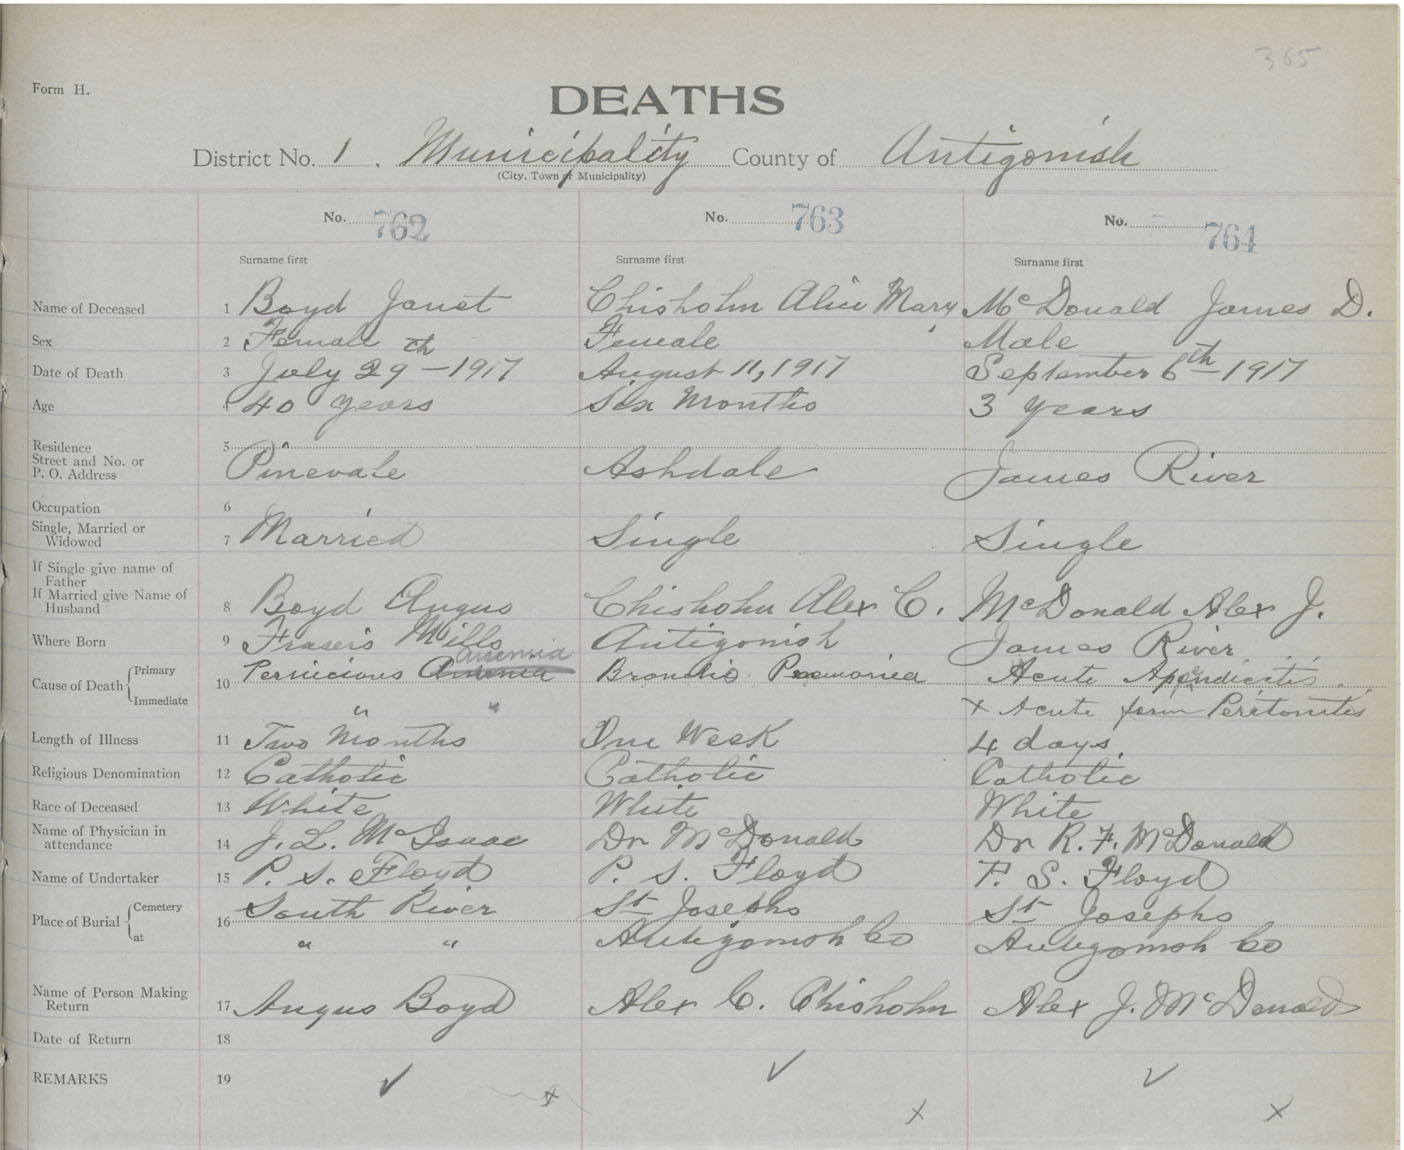 365
Form H.
DEATHS
District No. 1. Municipality County of Antigonish
(City, Town or Municipality)
No. 762 No. 763 No. 764
Surname first Surname first Surname first
Name of Deceased 1 Boyd Janet Chisholm Alice Mary McDonald James D.
Sex 2 Female Female Male
Date of Death 3 July 29th - 1917 August 11, 1917 September 6th - 1917
Age 4 40 years Six Months 3 years
Residence 5
Street and No. or
P. O. Address Pinevale Ashdale James River
Occupation 6
Single, Married or
Widowed 7 Married Single Single
If Single give name of
Father
If Married give Name of
Husband 8 Boyd Angus Chisholm Alex C. McDonald Alex J.
Where Born 9 Frasers Mills Antigonish James River
Cause of Death Primary 10 Pernicious Anemia Bronchio Pneumonia Acute Apendicitis
Immediate " " + Acute form Peritonitis
Length of Illness 11 Two Months One Week 4 days.
Religious Denomination 12 Catholic Catholic Catholic
Race of Deceased 13 White White White
Name of Physician in
attendance 14 J. L. McIsaac Dr McDonald Dr R. F. McDonald
Name of Undertaker 15 P. S. Floyd P. S. Floyd P. S. Floyd
Place of Burial Cemetery 16 South River St Josephs St Josephs
at " " Antigonish Co Antigonish Co
Name of Person Making
Return 17 Angus Boyd Alex C. Chisholm Alex J. McDonald
Date of Return 18
REMARKS 19 ✓ ✓ ✓
x x x